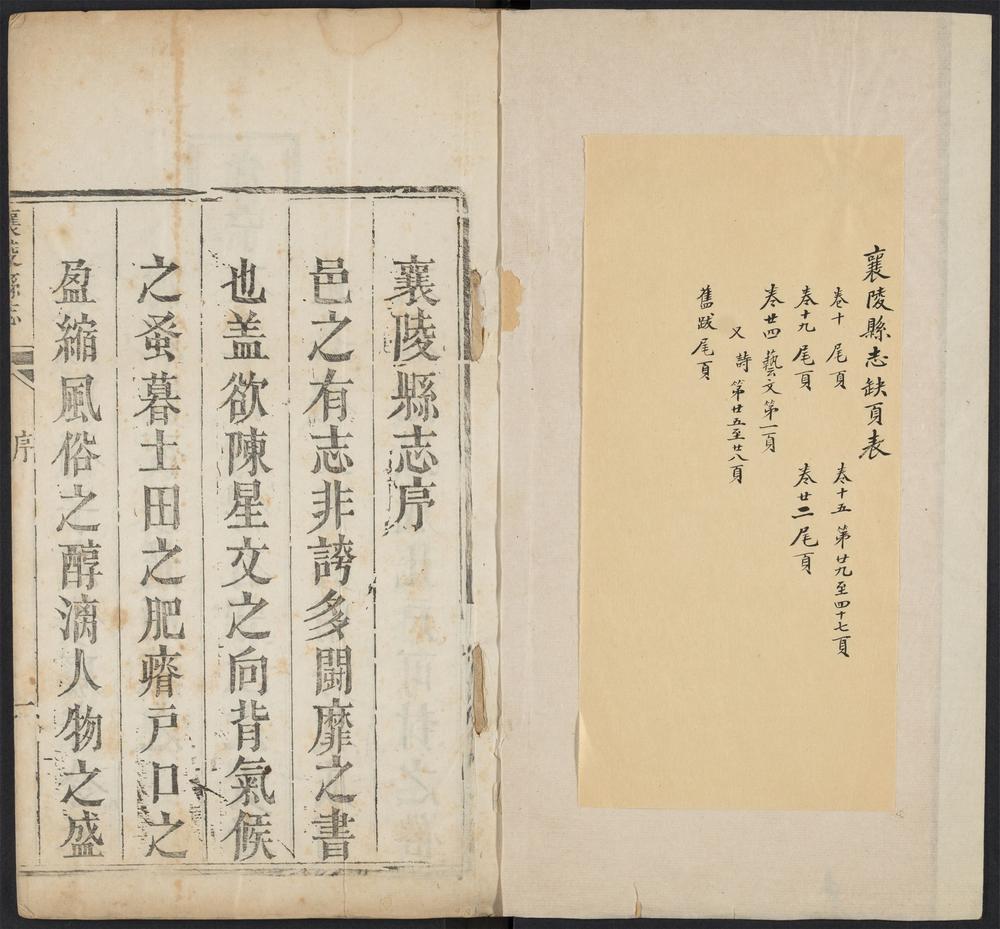 襄陵縣志缺頁表
卷十 尾頁 卷十五 第廿九至四十七頁
卷十九 尾頁 卷廿二尾頁
卷廿四 藝文第一頁
又 詩 第廿五至廿八頁
舊跋尾頁
襄陵縣志序
邑之有志非誇多鬪靡之書
也盖欲陳星文之向背氣候
之蚤暮土田之肥瘠戸口之
盈縮風俗之醇漓人物之盛
襄陵縣志 序 一